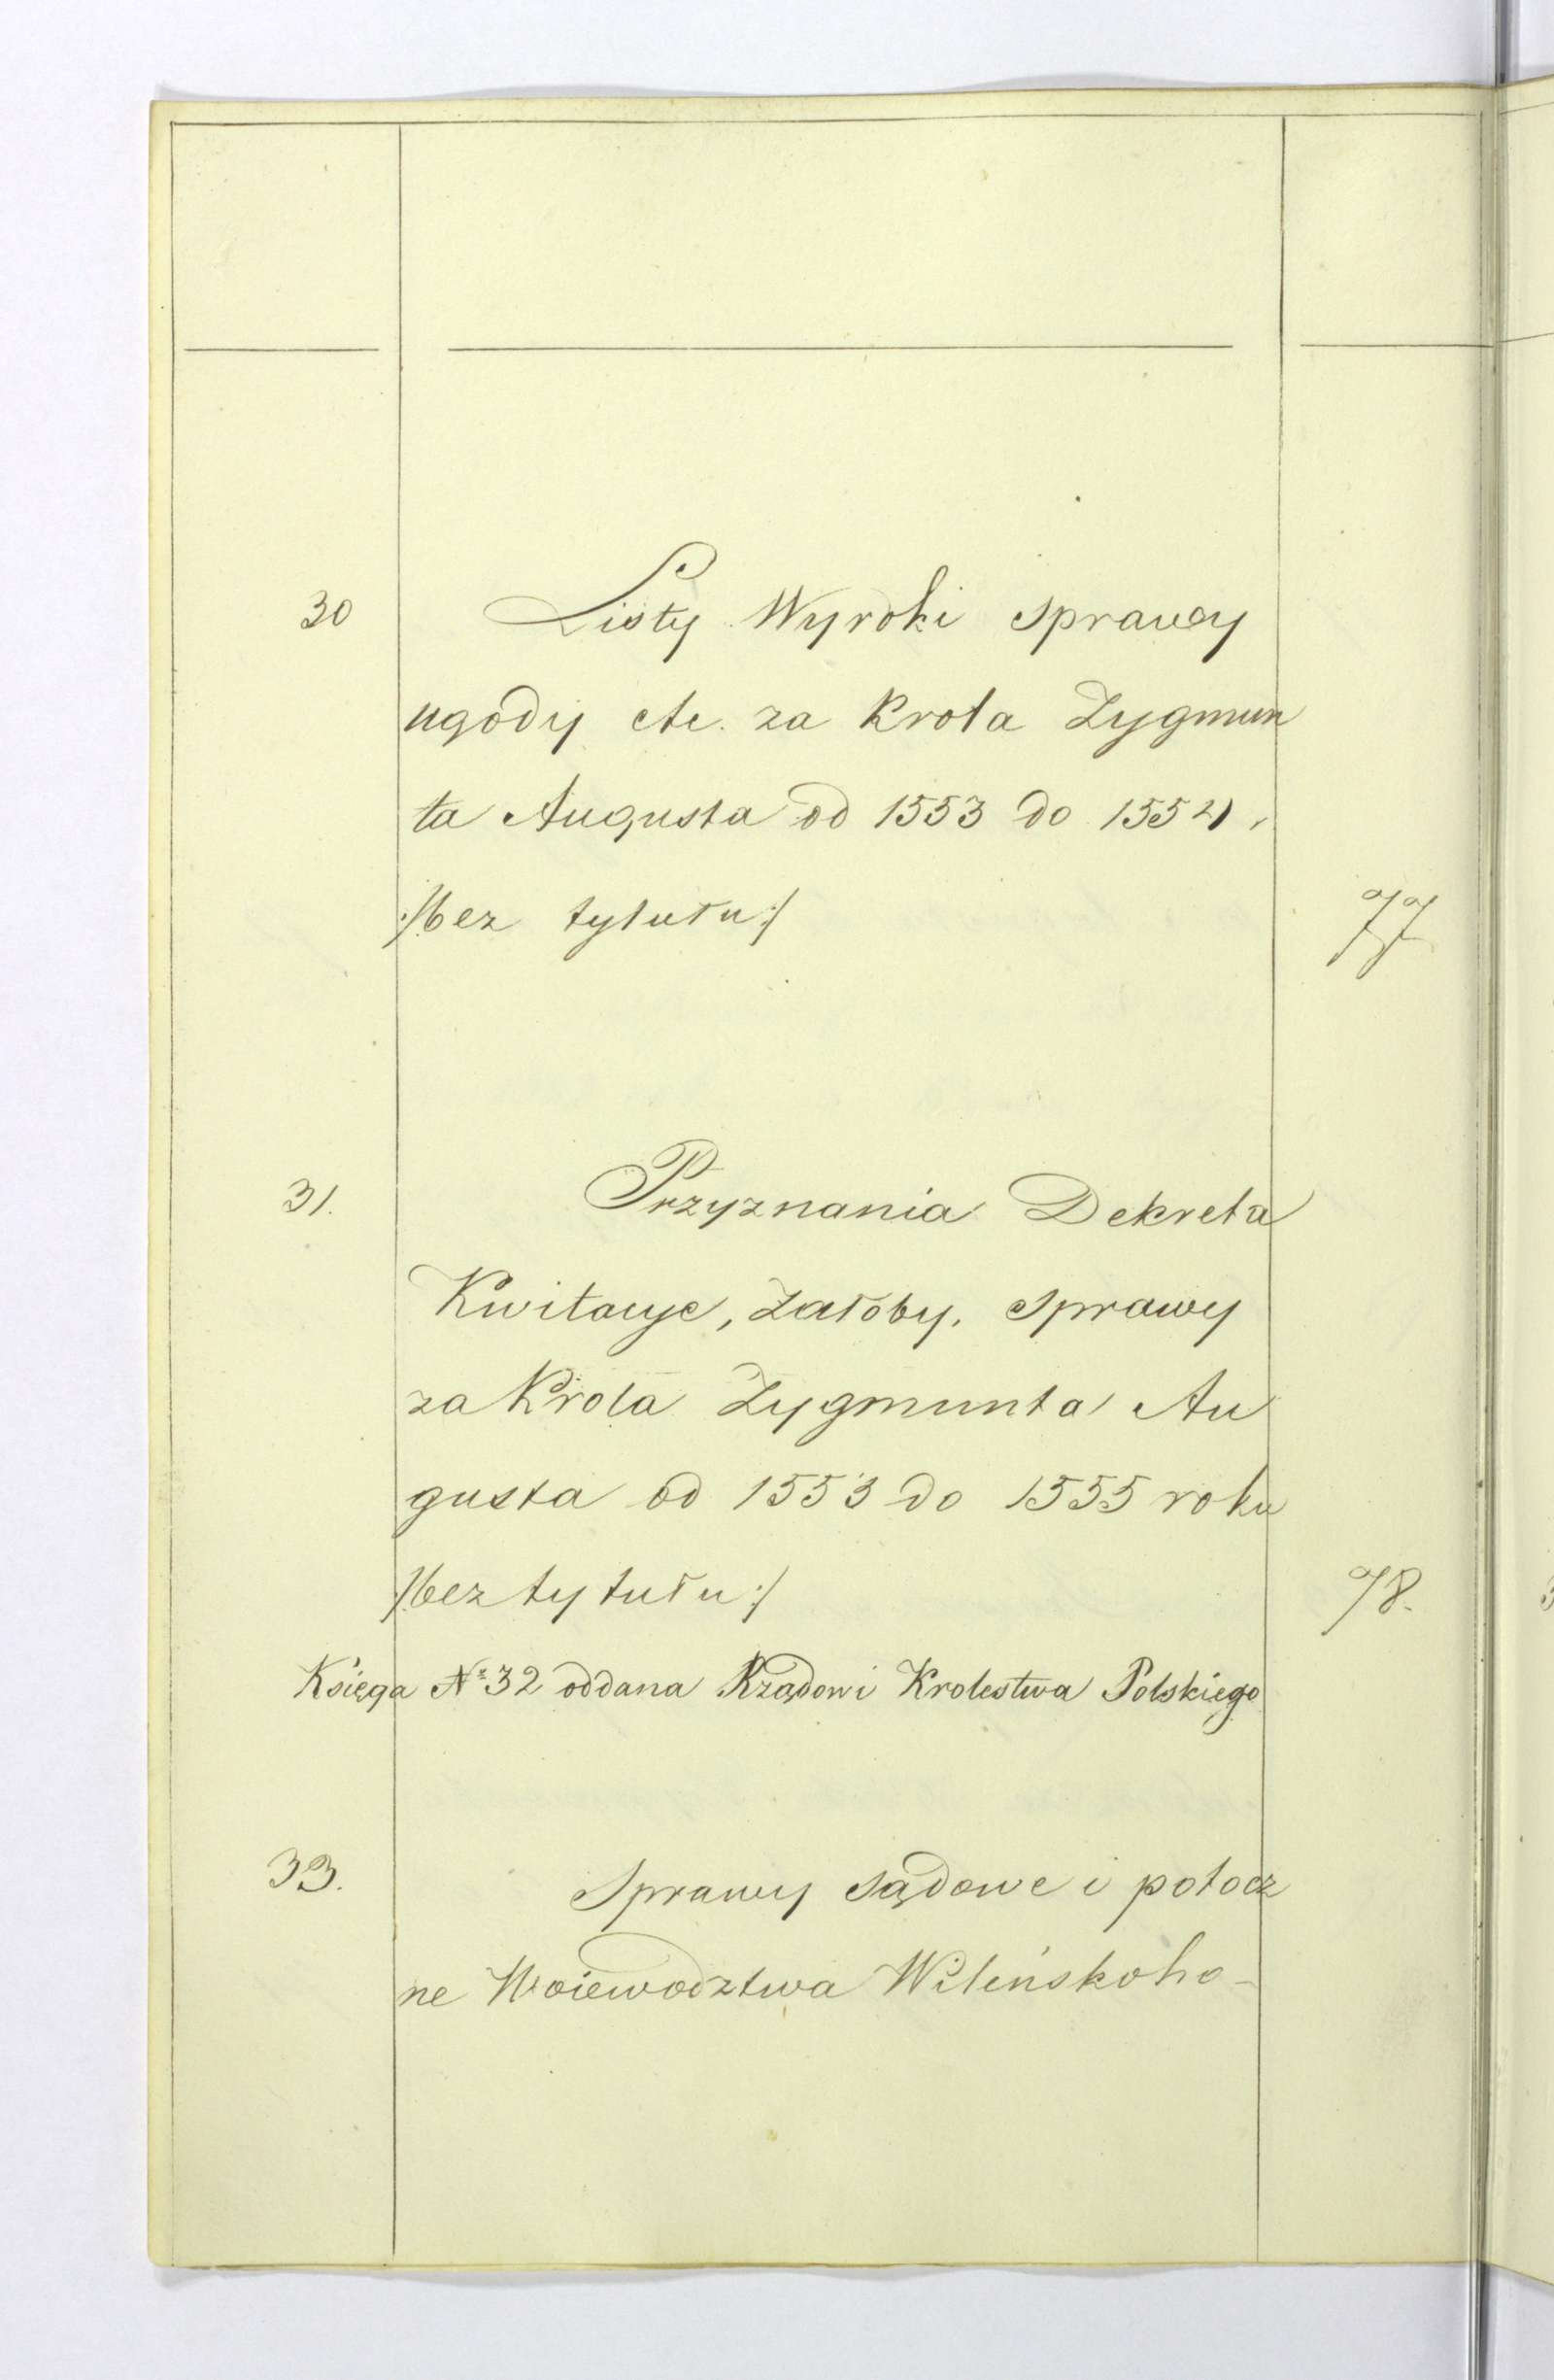 30 Listy Wyroki Sprawy
ugody etc. za Krola Zygmun
ta Augusta od 1553 do 1554,
/:bez tytułu:/ 77
31. Przyznania Dekreta
Kwitacye, żałoby, Sprawy
za Krola Zygmunta Au
gusta od 1553 do 1555 roku
/:bez tytułu:/ 78.
Księga № 32 oddana Rządowi Krolestwa Polskiego
33. Sprawy sądowe i potocz
ne Woiewodztwa Wileńskoho-